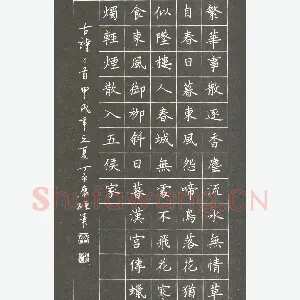 繁華事散逐香塵流水無情草
自春日暮東風怨啼鳥落花猶
似墜樓人春城無處不飛花寒
食東風御柳斜日暮漢宮傳蠟
燭輕煙散入五侯家
古詩二首甲戌年之夏